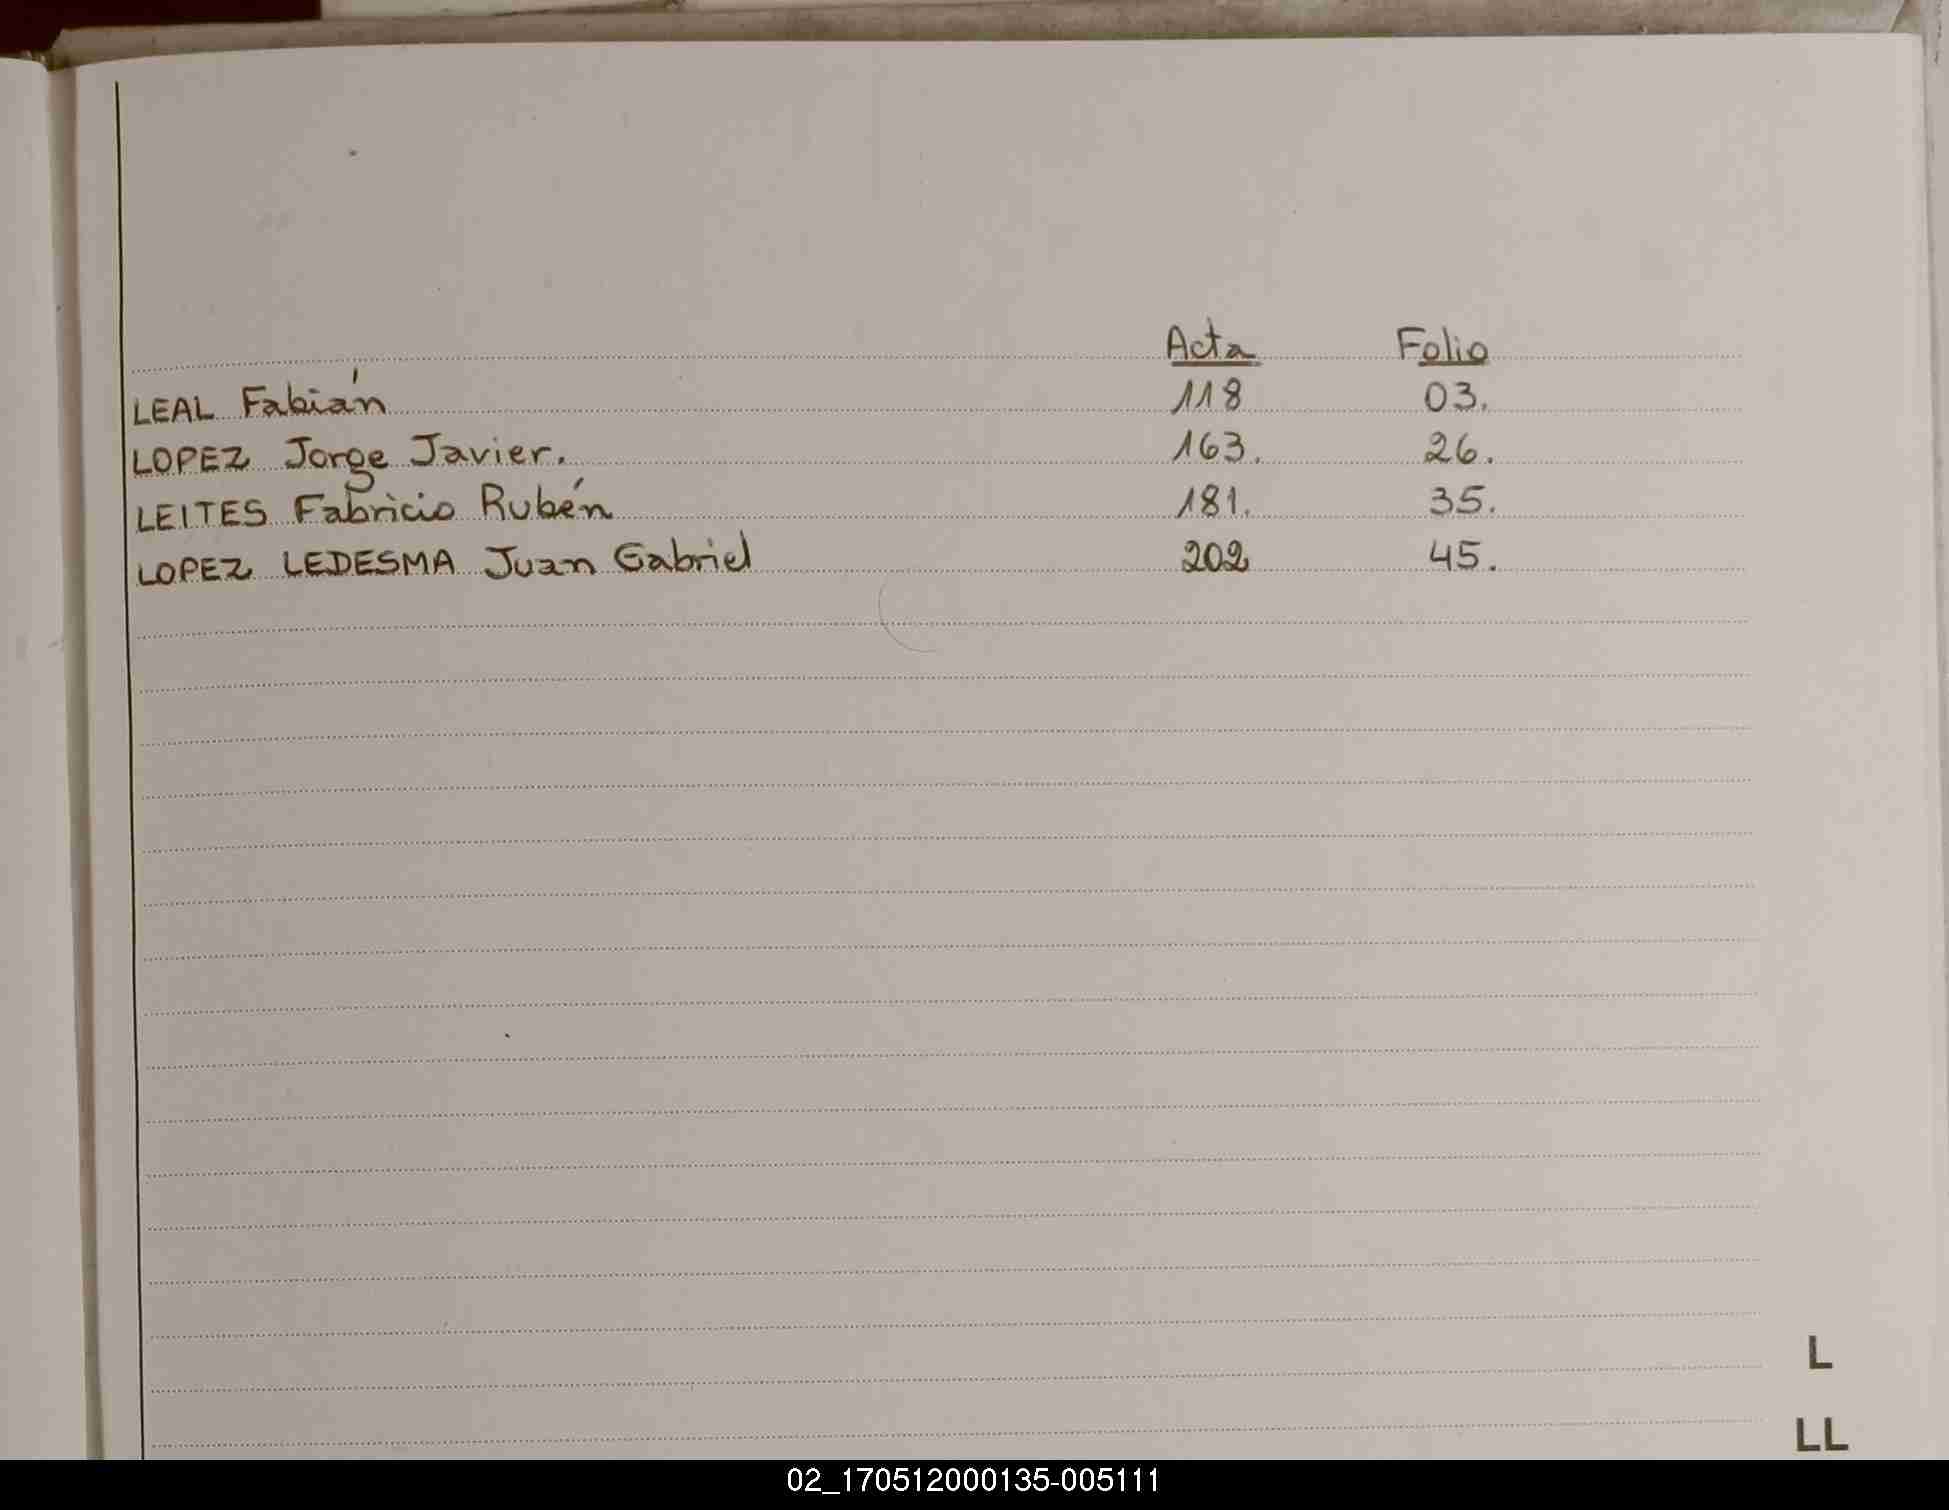 Acta Folio
LEAL Fabián 118 03.
LOPEZ Jorge Javier. 163. 26.
LEITES Fabricio Rubén 181. 35.
LOPEZ LEDESMA Juan Gabriel 202 45.
L
LL
02_170512000135-005111